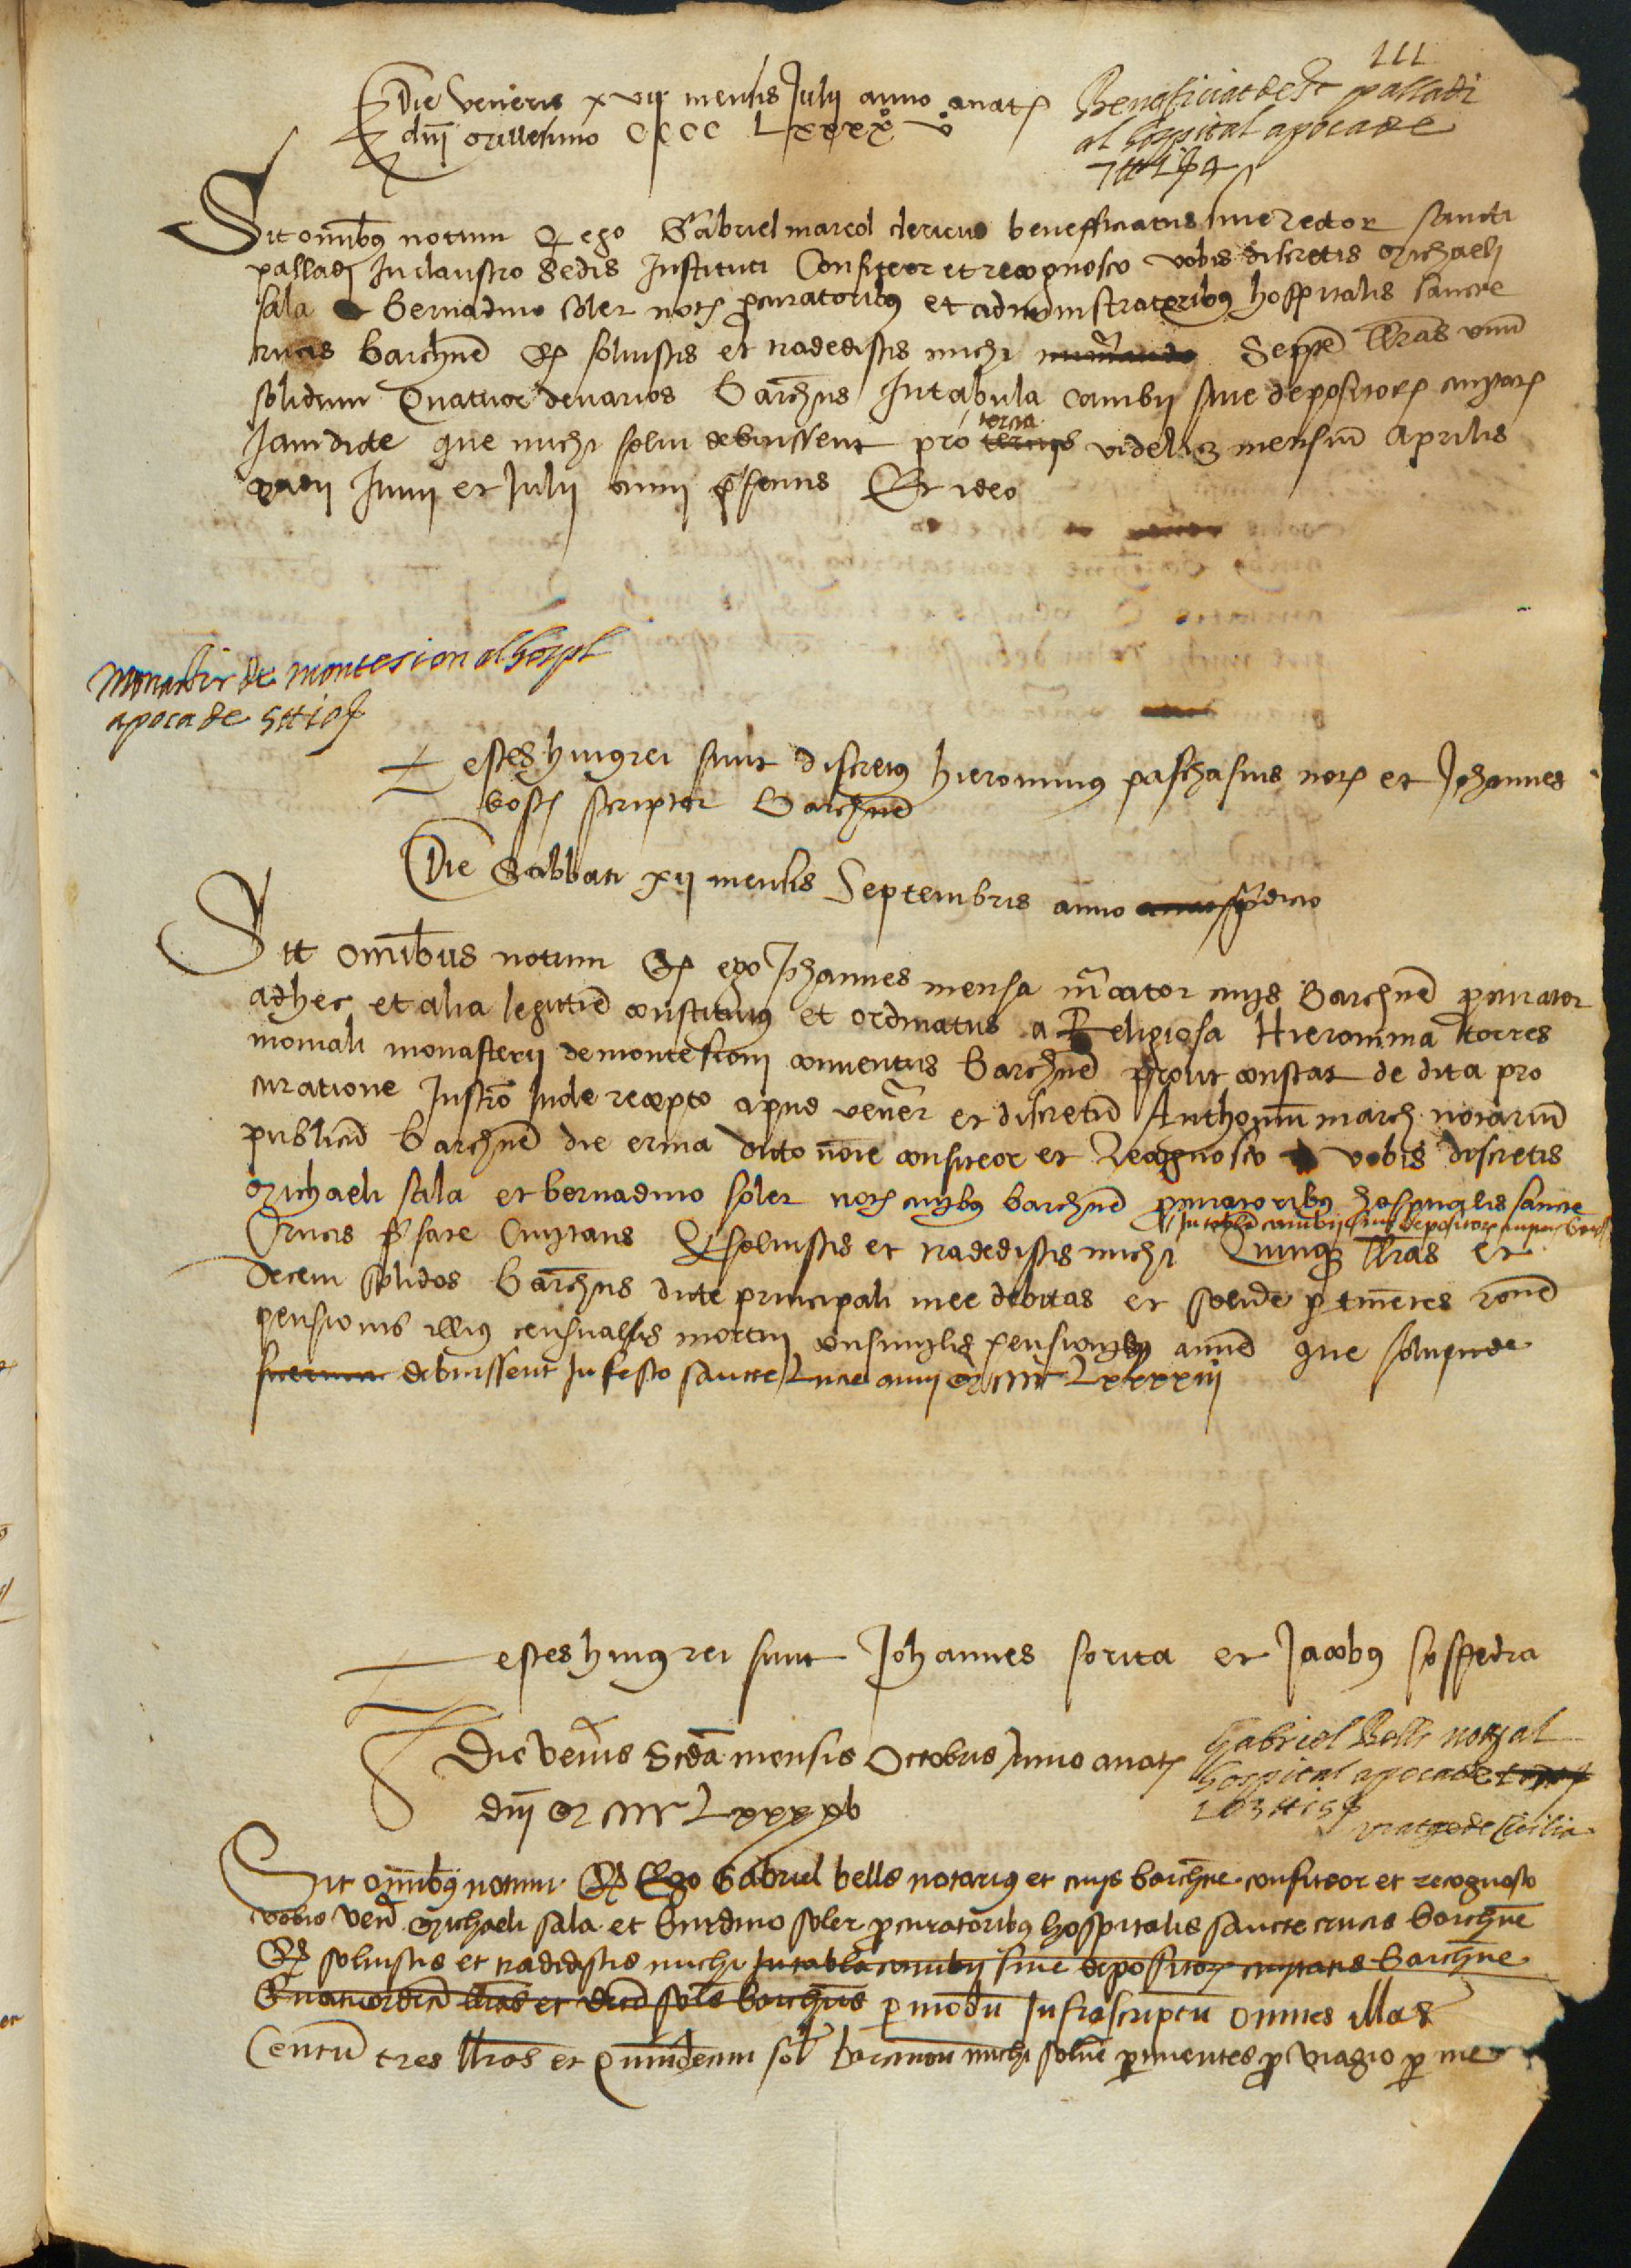 III
Die veneris xvii mensis Julii anno a nat
dni millesimo CCCC Lxxxx v
Beneficiat de St palladi
al hospital apoca de
7 ₶ 1 ẜ 4
Sit omibus notum q ego Gabriel marcol clericus benefficiatus sive rector sancti
palladii In claustro Sedis Instituti Confiteor et recognosco vobis discretis Michaeli
sala Bernadino soler not procuratoribus et administratoribus hospitalis sancte
crucis barchne q solvistis et tradedistis michi Septe llras unu
solidum Quatuor denarios barchns In tabula cambii sive depositor civitat
Jamdicte que michi solvi debuissent pro tercia videlicz mensiu Aprilis
Madii Junii et Julii anni psentis Et ideo
Monastir de montesion al hospl
apoca de 5 ₶ 10 ẜ
Testes huius rei sunt discretus hieronimus paschasius not et Johannes
scriptor Barchne
Die Sabbati xii mensis Septembris anno pdicto
Sit omibus notum q ego Johannes mensa mcator civis Barchne procurator
ad hec et alia legittie constitutus et ordinatus a Religiosa Hieronima torres
moniali monasterii de montesion conventus Barchne prout constat de dicta pro
curatione Instro Inde recepto apud vener et discretu Anthoniu march notariu
publicu barchne die dicto noie confiteor et Recognosco vobis discretis
Michaeli sala et bernadino soler not civibus barchne procuratoribus hospitalis sancte
In tabla cambii sive depositor civitat barch
Crucis pfate Civitatis q solvistis et tradedistis michi Quinq llras et
decem solidos Barchns dicte principali mee debitas et solvde ptinetes rone
pensionis illius censualis mortui pensionibus annue que solvi
debuissent In festo sancte Lucie anni M CCCC Lxxxxiii
Testes huius rei sunt Johannes sorita et Jacobus sospedra
Die veneris Scda mensis Octobris Anno a nat
dni M CCCC Lxxxxv
Gabriel Bells not al
hospital apoca de
103 ₶ 15 ẜ
viatge de Cicilia
Sit omibus notum q Ego Gabriel bells notarius et civis barchne confiteor et recognosco
vobis vend Michaeli sala et bnrdino soler procuratoribus hospitalis sancte crucis barchne
q solvistis et tradidistis michi In tabla cambii sive depositor civitatis barchne
Quatuordeci llras et dece sols barchns p modu Infrascriptu omnes illas
Centu tres llras et quindecim sol barcinon michi solve ptinentes pro viagio p me